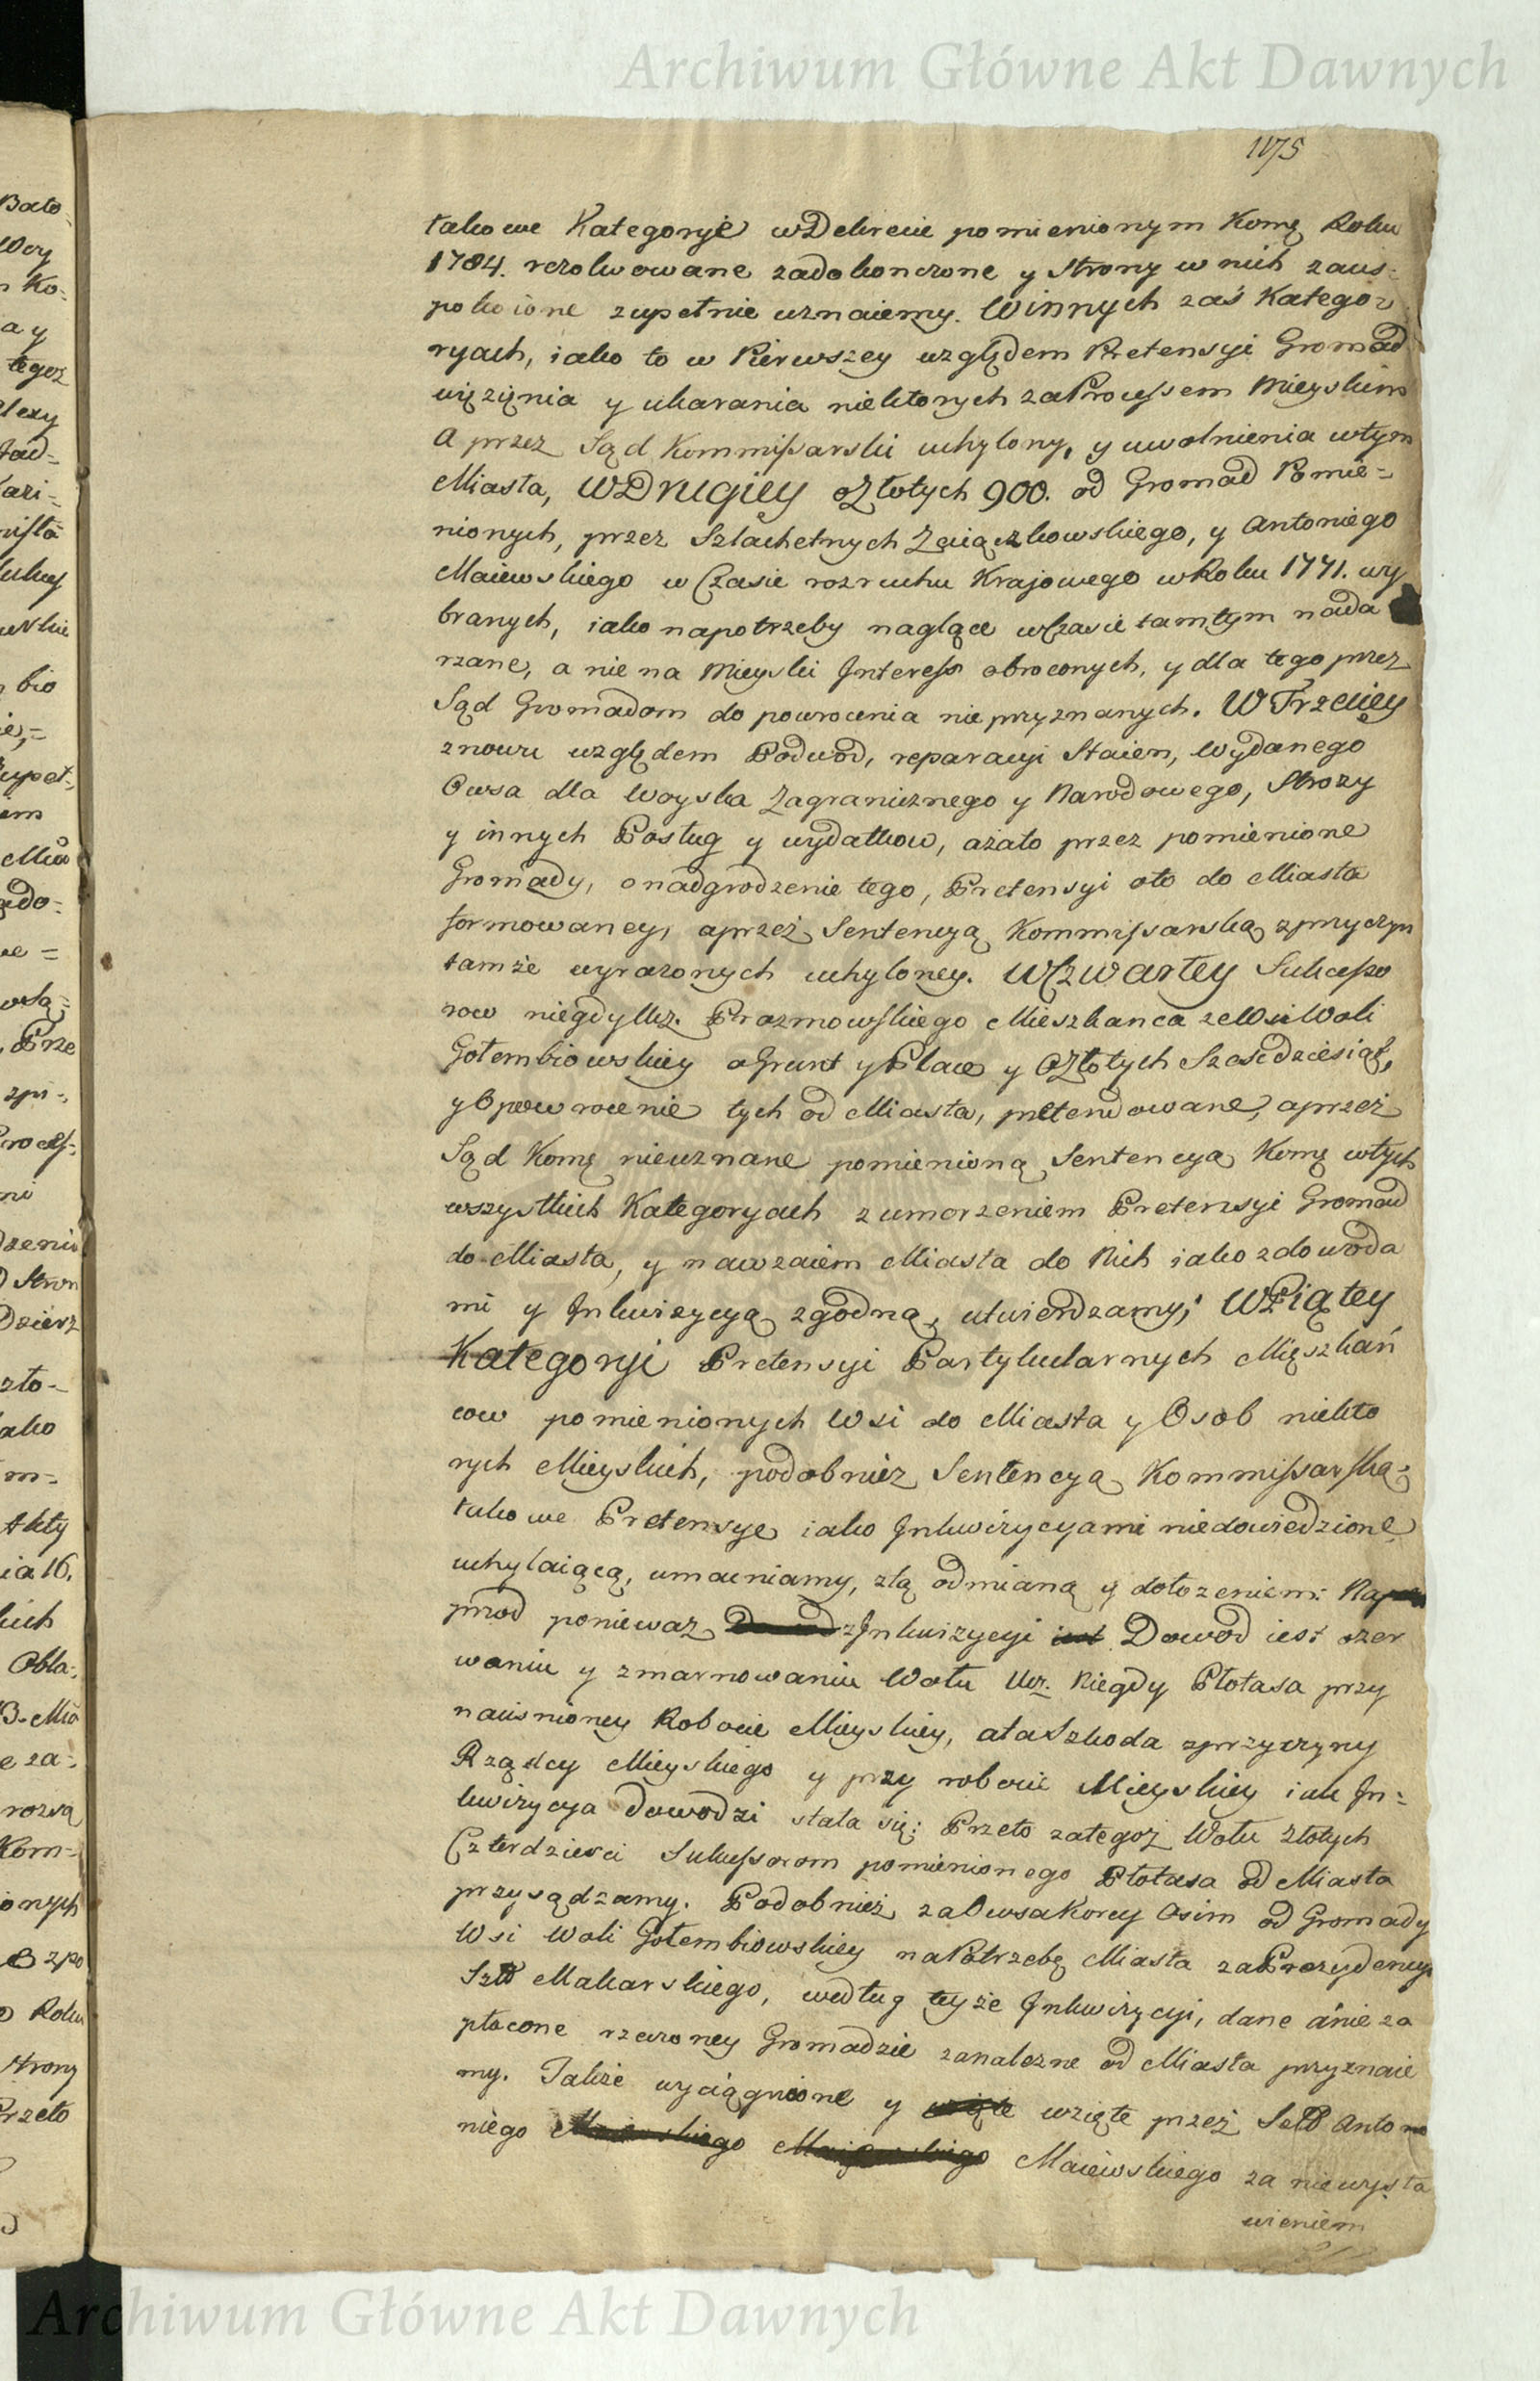 Archiwum Główne Akt Dawnych
1175
takowe Kategorye w Dekrecie pomienionym Komę Roku
1784. rezolwowane zadokonczone y Strony w nich zaus-
pokoione zupełnie uznaiemy. W innych zaś Katego-
ryach, iako to w Pierwszey względem Pretensyi Gromad
więzięnia y ukarania niektorych za Processem Mieyskim
a przez Sąd Kommissarski uchylony, y uwolnienia w tym
Miasta, W Drugiey o Złotych 900. od Gromad Pomie-
nionych, przez Szlachetnych Zaiączkowskiego, y Antoniego
Maiewskiego w Czasie rozruchu Krajowego w Roku 1771. wy
branych, iako na potrzeby naglące w Czasie tamtym nada
rzane, a nie na Mieyski Interess obroconych, y dla tego przez
Sąd Gromadom do powrocenia nie przyznanych. W Trzeciey
znowu względem Podwod, reparacyi Staien, Wydanego
Owsa dla Woyska Zagranicznego y Narodowego, Strozy
y innych Posług y wydatkow, a zato przez pomienione
Gromady, o nadgrodzenie tego, Pretensyi oto do Miasta
formowaney, a przez Sentencyą Kommissarską z przyczyn
tamże wyrazonych uchyloney. W Czwartey Sukcesso
row niegdy Ucz. Prazmowskiego Mieszkanca ze Wsi Woli
Gołembiowskiey o Grunt y Place y o Złotych Szescdziesiąt,
y o powrocenie tych od Miasta, pretendowane, a przez
Sąd Komę nieuznane pomienioną Sentencyą Komę w tych
wszystkich Kategoryach z umorzeniem Pretensyi Gromad
do Miasta, y nawzaiem Miasta do Nich iako z dowoda
mi y Inkwizycyą zgodną, utwierdzamy; W Piątey
Kategoryi Pretensyi Partykularnych Mięszkań
cow pomienionych Wsi do Miasta y Osob niekto
rych Mieyskich, podobniez Sentencyą Kommissarską
takowe Pretensye iako Inkwizycyami niedowiedzione
uchylaiącą, umacniamy, z tą odmianą y dołozeniem: Nap
przod poniewaz z Inkwizycyi Dowod iest o zer
waniu y zmarnowaniu Wołu Ucz. Niegdy Płotasa przy
nacisnioney Robocie Mieyskiey, a ta Szkoda z przyczyny
Rządcy Mieyskiego y przy robocie Mieyskiey iak In-
kwizycya dowodzi stała się: Przeto za tegoż Wołu Złotych
Czterdziesci Sukcessorom pomienionego Płotasa od Miasta
przysądzamy. Podobnież za Owsa Korcy Osim od Gromady
Wsi Woli Gołembiowskiey na Potrzebę Miasta za Prezydencyi
Szla Makarskiego, według teyże Inkwizycyi, dane a nie za
płacone rzeczoney Gromadzie zanalezne od Miasta przyznaie
my. Także wyciągnione y wzięte przez Szla Anto
niego Maiewskiego za niewysta
wieniem
Archiwum Główne Akt Dawnych